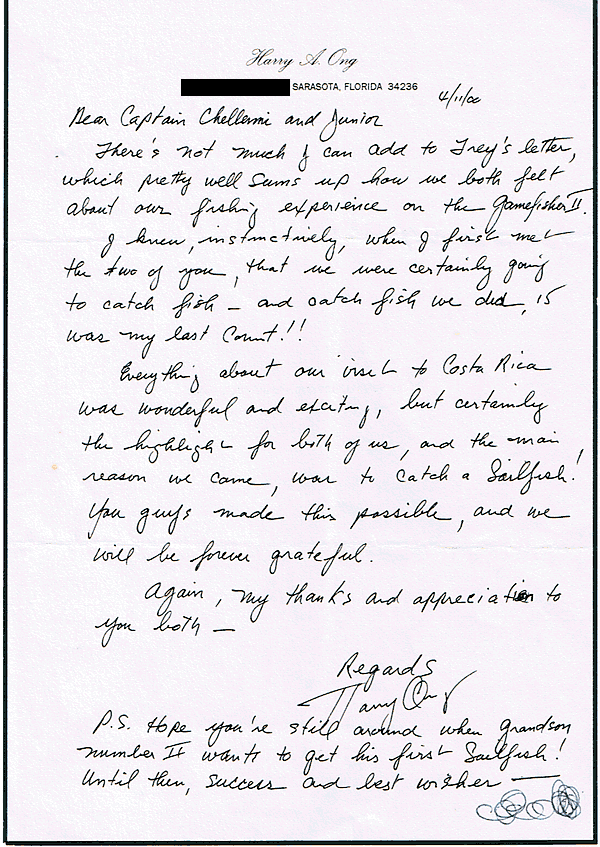 Harry A. Ong
SARASOTA, FLORIDA 34236
4/11/00
Dear Captain Chellemi and Junior
There's not much I can add to Trey's letter,
which pretty well sums up how we both felt
about our fishing experience on the Gamefisher II.
I knew, instinctively, when I first met
the two of you, that we were certainly going
to catch fish – and catch fish we did, 15
was my last count!!
Everything about our visit to Costa Rica
was wonderful and exciting, but certainly
the highlight for both of us, and the main
reason we came, was to catch a Sailfish!
You guys made this possible, and we
will be forever grateful.
Again, my thanks and appreciation to
you both –
Regards
Harry Ong
P.S. Hope you're still around when grandson
number II wants to get his first Sailfish!
Until then, success and best wishes –